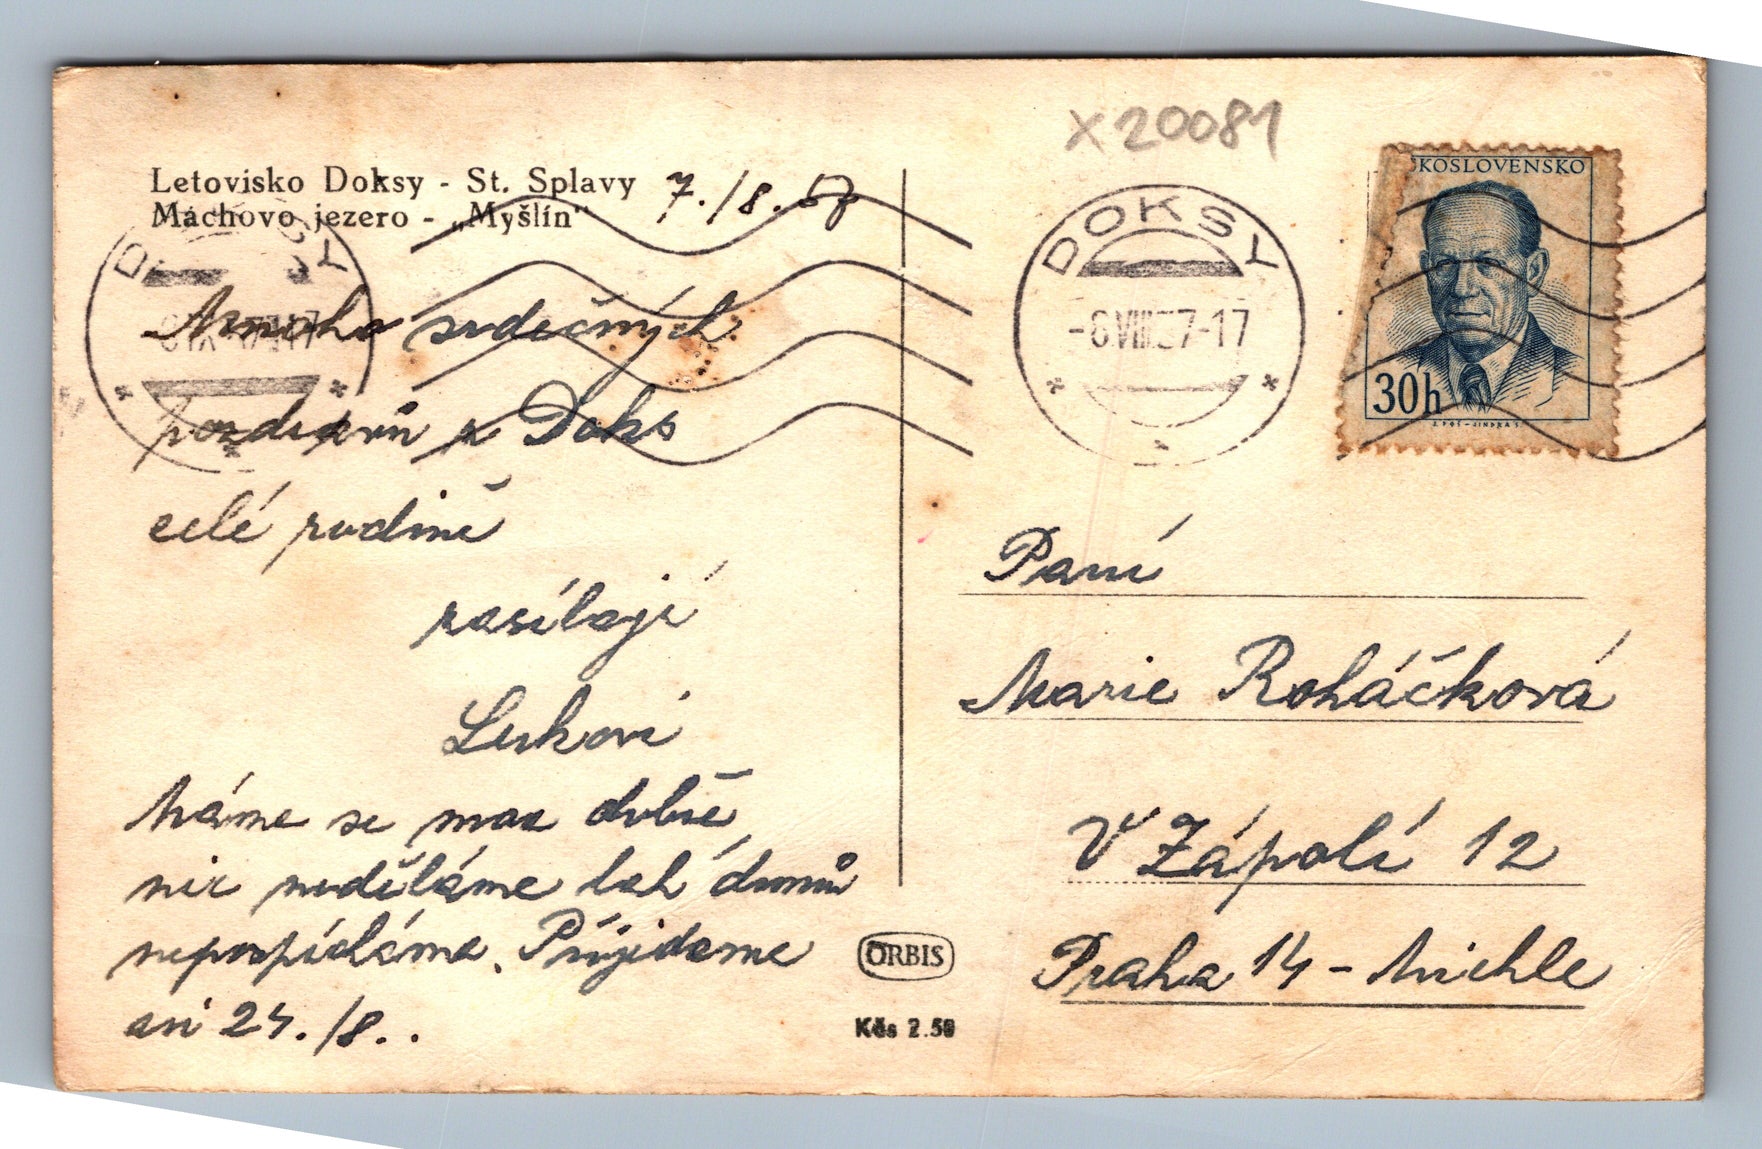 X20081
Letovisko Doksy - St. Splavy
Máchovo jezero - „Myšlín“
7./8. 57
DOKSY
DOKSY
-6.VIII.57-17
KOSLOVENSKO
30h
Mnoho srdečných
pozdravů z Doks
celé rodině
zasílají
Lukovi
Máme se moc dobře,
nic neděláme
nepospícháme. Přijedeme
asi 24./8..
Paní
Marie Roháčková
V Zápolí 12
Praha 14 - Michle
ORBIS
Kčs 2.50